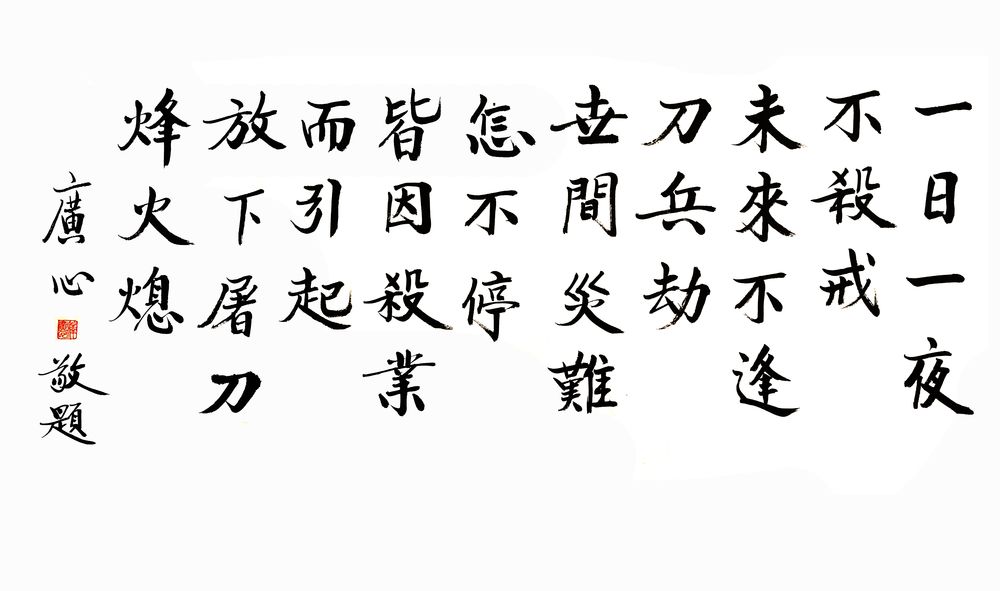 一日一夜
不殺戒
未來不逢
刀兵劫
世間災難
怎不停
皆因殺業
而引起
放下屠刀
烽火熄
廣心敬題